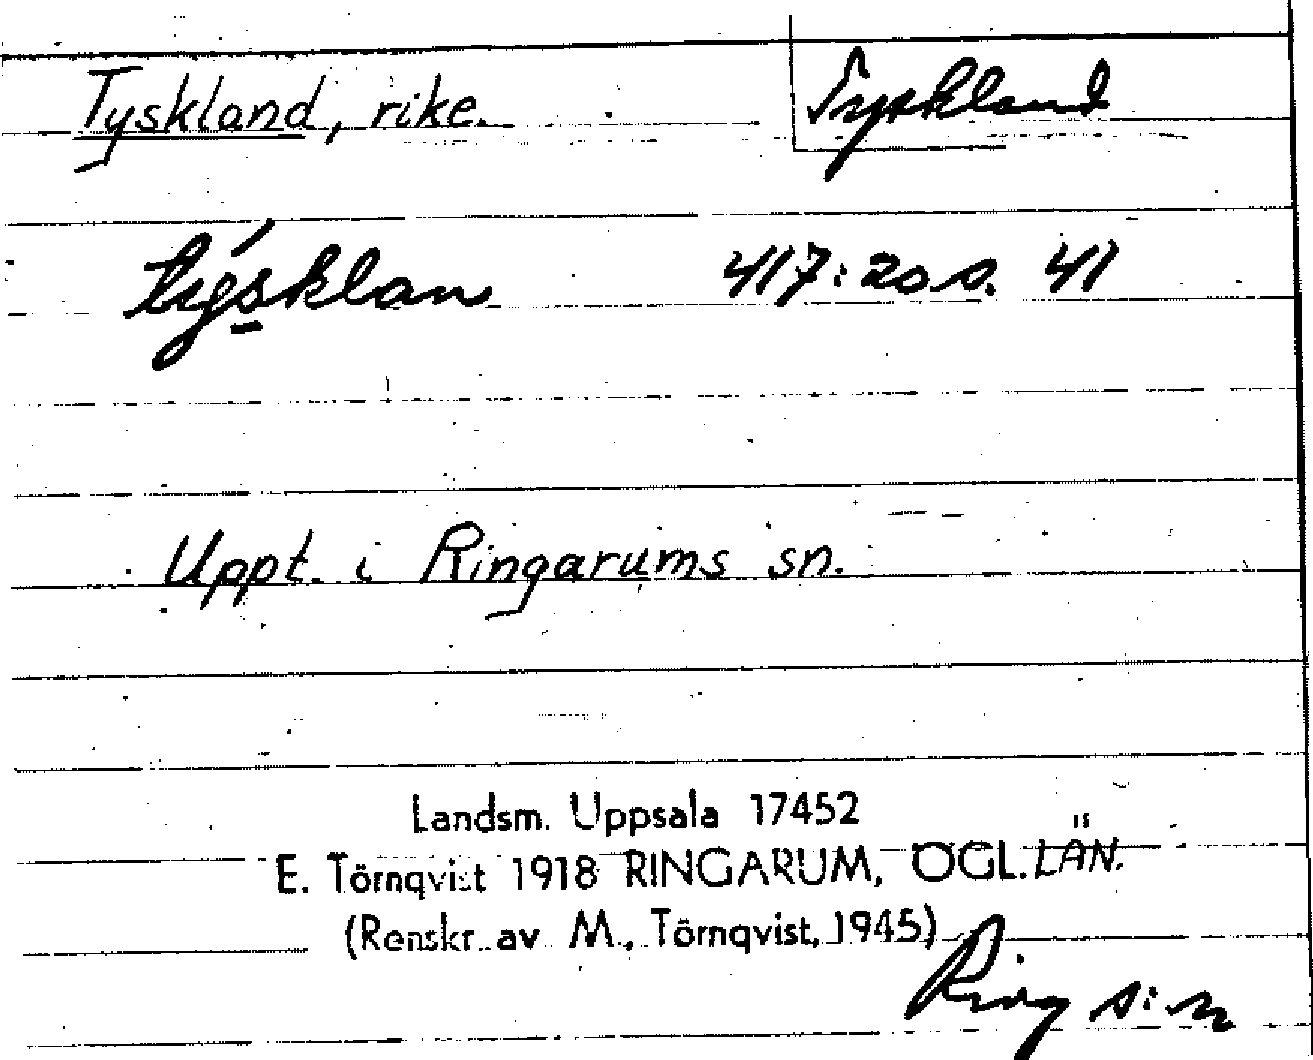 Tyskland, rike. Tyskland
týsklan 417:20 s. 41
Uppt. i Ringarums sn.
Landsm. Uppsala 17452
E. Törnqvist 1918 RINGARUM, ÖGL. LÄN.
(Renskr. av M. Törnqvist, 1945)
Ring s:n